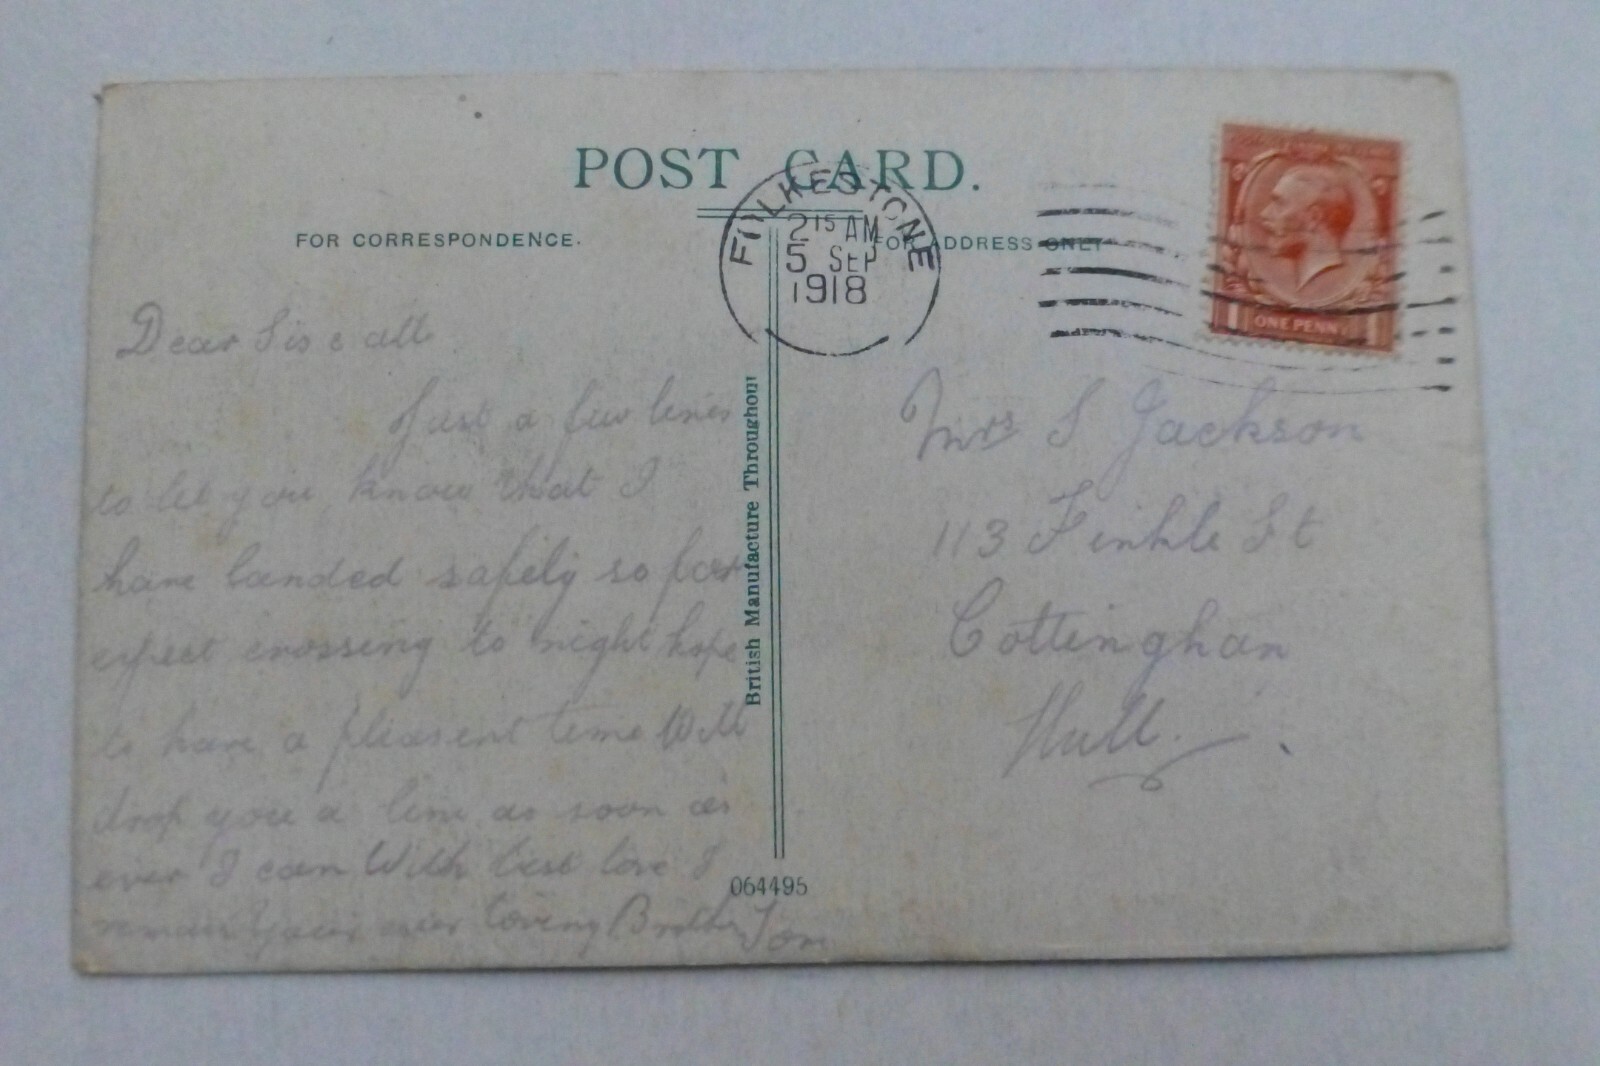 POST CARD.
FOR CORRESPONDENCE.
FOR ADDRESS ONLY
FOLKESTONE
2 15 AM
5 SEP
1918
ONE PENNY
British Manufacture Throughout
Dear Sis & all
Just a few lines
to let you know that I
have landed safely so far
expect crossing to night hope
to have a pleasent time Will
drop you a line as soon as
ever I can With best love I
remain your ever loving Brother Tom
064495
Mrs S Jackson
113 Finkle St
Cottingham
Hull.